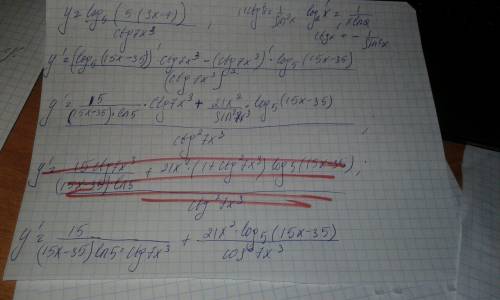 y = log₅(5(3x-7)) / ctg7x³
ctgx = - 1/sin²x
y' = ((log₅(15x-35))' ctg7x³ - (ctg7x³)' · log₅(15x-35)) / (ctg7x³)²
y' = (15/((15x-35)·ln5) · ctg7x³ + 21x²/sin²7x³ · log₅(15x-35)) / ctg²7x³ ,
y' = (15ctg7x³/((15x-35)ln5) + 21x²·(1+ctg²7x³) log₅(15x-35)) / ctg²7x³ ;
y' = 15/((15x-35)ln5·ctg7x³) + 21x²·log₅(15x-35)/cos²7x³